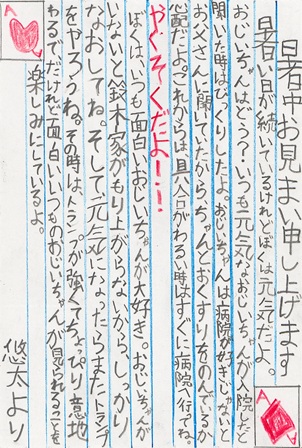 暑中お見まい申し上げます
暑い日が続いているけれどぼくは元気だよ。
おじいちゃんはどう？いつも元気なおじいちゃんが入院したと
聞いた時はびっくりしたよ。おじいちゃんは病院が好きじゃないと
お父さんに聞いていたから、ちゃんとおくすりをのんでいるか
心配だよ。これからは具合がわるい時はすぐに病院へ行ってね。
やくそくだよ！！
ぼくは、いつも面白いおじいちゃんが大好き。おじいちゃんが
いないと鈴木家がもり上がらないから、しっかり
なおしてね。そして元気になったらまたトランプ
をやろうね。その時は、トランプが強くてちょっぴり意地
わるでだけれど面白いいつものおじいちゃんが見られることを
楽しみにしているよ。
悠太より
A
A